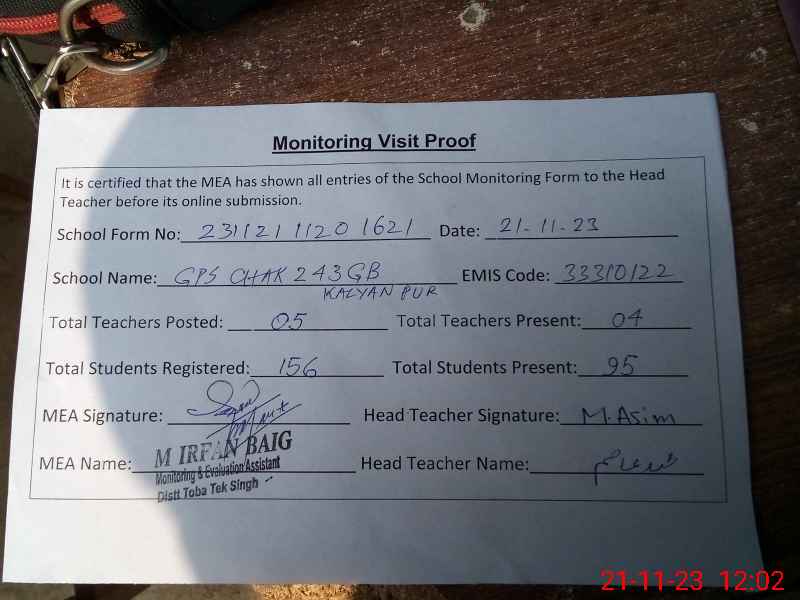 Monitoring Visit Proof
It is certified that the MEA has shown all entries of the School Monitoring Form to the Head
Teacher before its online submission.
School Form No: 231121 1120 1621 Date: 21-11-23
School Name: GPS CHAK 243GB EMIS Code: 33310122
KALYAN PUR
Total Teachers Posted: 05 Total Teachers Present: 04
Total Students Registered: 156 Total Students Present: 95
MEA Signature: Head Teacher Signature: M.Asim
MEA Name: M IRFAN BAIG Head Teacher Name: محمد عاصم
Monitoring & Evaluation Assistant
Distt Toba Tek Singh
21-11-23 12:02